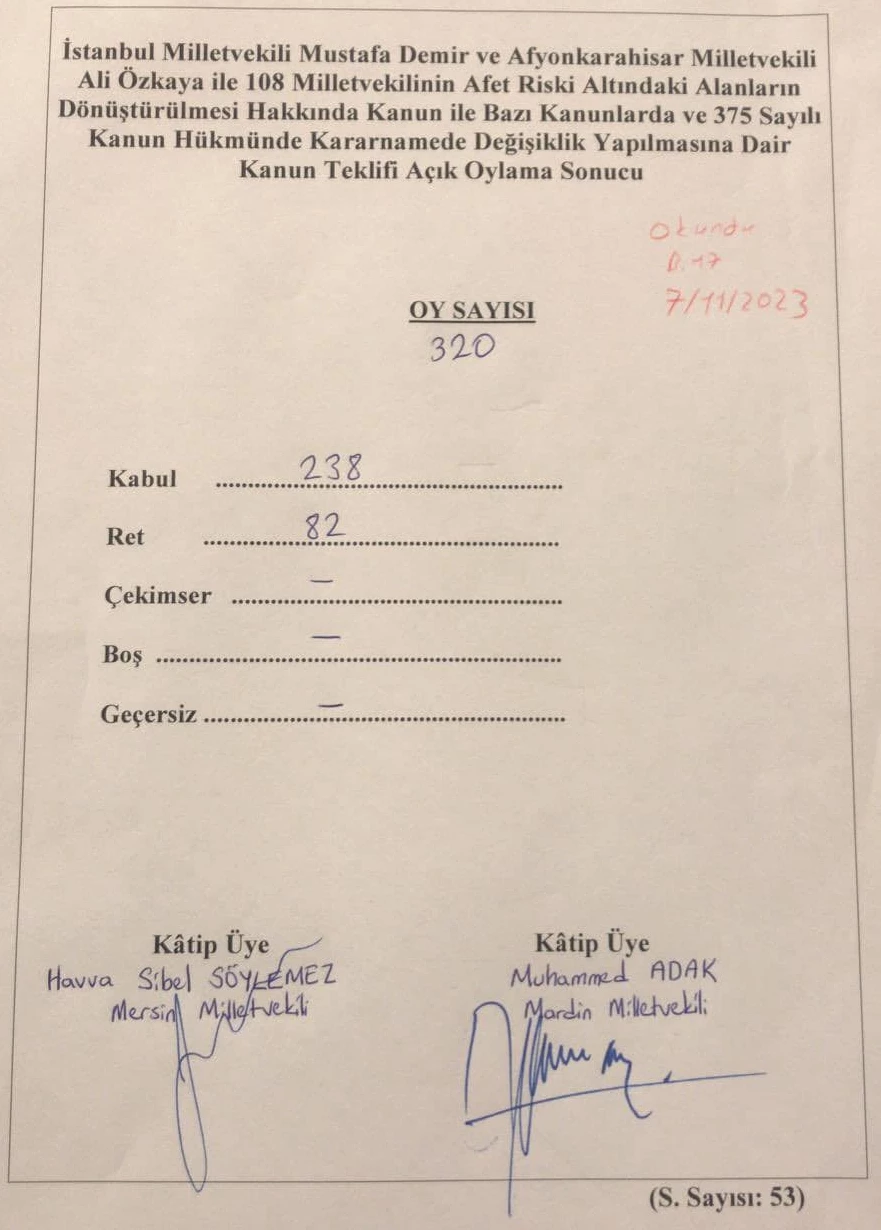 İstanbul Milletvekili Mustafa Demir ve Afyonkarahisar Milletvekili
Ali Özkaya ile 108 Milletvekilinin Afet Riski Altındaki Alanların
Dönüştürülmesi Hakkında Kanun ile Bazı Kanunlarda ve 375 Sayılı
Kanun Hükmünde Kararnamede Değişiklik Yapılmasına Dair
Kanun Teklifi Açık Oylama Sonucu
Okundu
B.17
7/11/2023
OY SAYISI
320
Kabul ........ 238 ........
Ret ........ 82 ........
Çekimser ........ — ........
Boş ........ — ........
Geçersiz ........ — ........
Kâtip Üye Kâtip Üye
Havva Sibel SÖYLEMEZ Muhammed ADAK
Mersin Milletvekili Mardin Milletvekili
(S. Sayısı: 53)